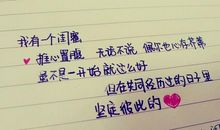 我有个闺蜜
推心置腹 无话不说 偶尔也心存芥蒂
虽不是一开始就这么好
但在共同经历过的日子里
坚定彼此的